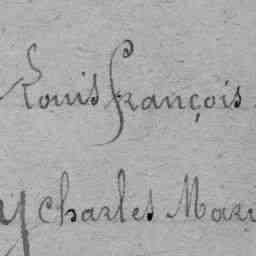 Louis françois
y Charles Mari